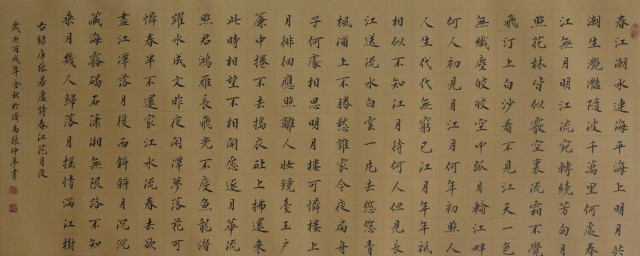 春江潮水連海平海上明月共
潮生灩灩隨波千萬里何處春
江無月明江流宛轉繞芳甸月
照花林皆似霰空裏流霜不覺
飛汀上白沙看不見江天一色
無纖塵皎皎空中孤月輪江畔
何人初見月江月何年初照人
人生代代無窮已江月年年祇
相似不知江月待何人但見長
江送流水白雲一片去悠悠青
楓浦上不勝愁誰家今夜扁舟
子何處相思明月樓可憐樓上
月徘徊應照離人妝鏡臺玉戶
簾中捲不去搗衣砧上拂還來
此時相望不相聞願逐月華流
照君鴻雁長飛光不度魚龍潛
躍水成文昨夜閒潭夢落花可
憐春半不還家江水流春去欲
盡江潭落月復西斜斜月沉沉
藏海霧碣石瀟湘無限路不知
乘月幾人歸落月搖情滿江樹
右錄唐張若虛詩春江花月夜
歲次丙戌年金秋於濟南張仲亭書